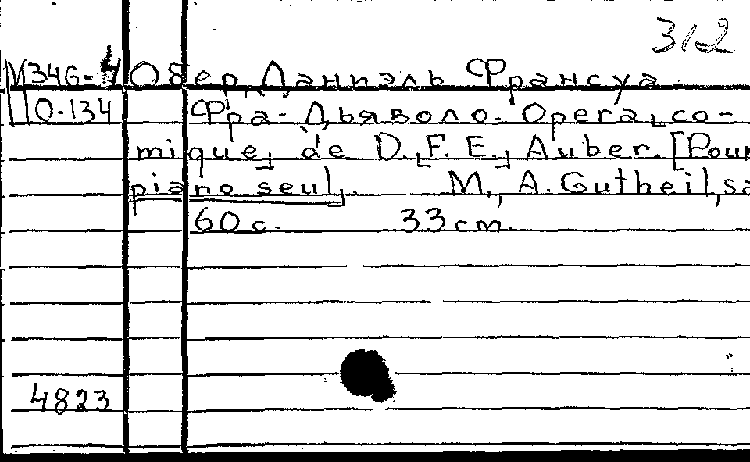 312
М34G-4 Обер, Даниэль Франсуа
О-134 Фра-Дьяволо. Opera[,]co-
mique[,] de D.[,]F.E.[,] Auber. [Pour
piano seul]. M., A. Gutheil,
60 с. 33 cm.
4823